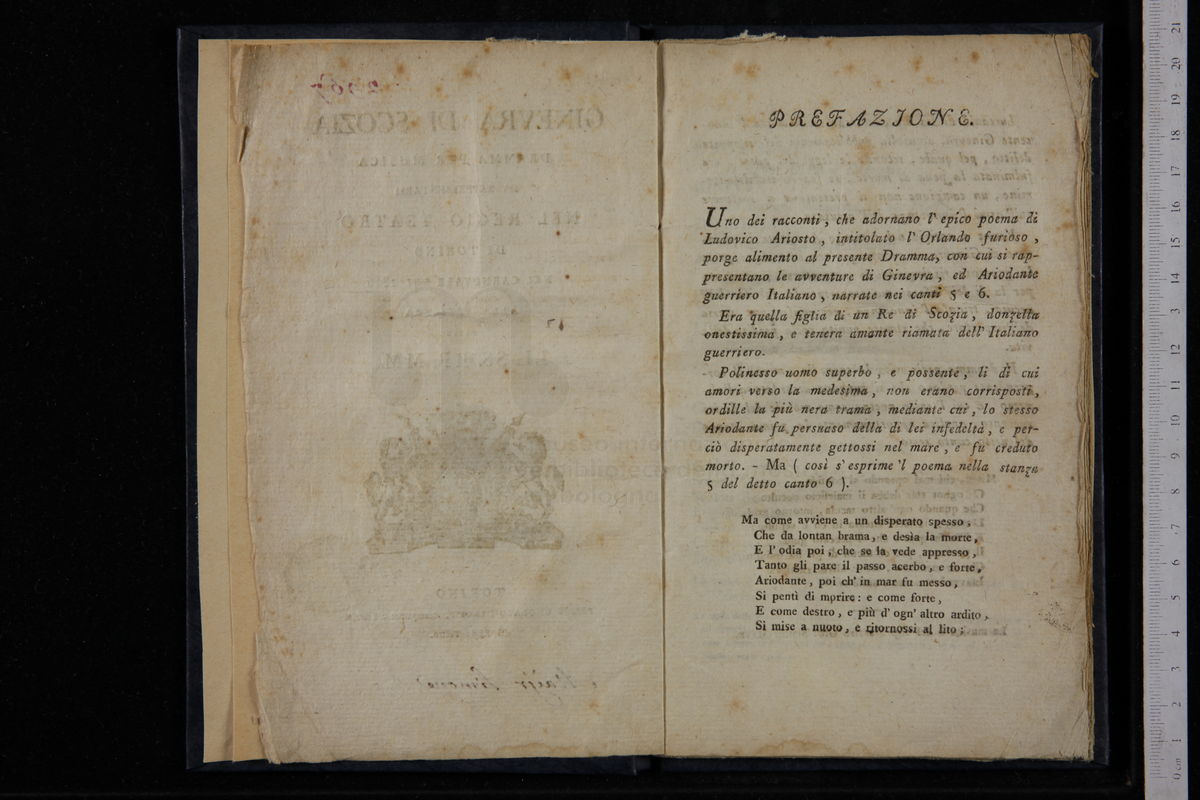 PREFAZIONE.
Uno dei racconti, che adornano l'epico poema di
Ludovico Ariosto, intitolato l'Orlando furioso,
porge alimento al presente Dramma, con cui si rap-
presentano le avventure di Ginevra, ed Ariodante
guerriero Italiano, narrate nei canti 5 e 6.
Era quella figlia di un Re di Scozia, donzella
onestissima, e tenera amante riamata dell'Italiano
guerriero.
Polinesso uomo superbo, e possente, li di cui
amori verso la medesima, non erano corrisposti,
ordille la più nera trama, mediante cui, lo stesso
Ariodante fu persuaso della di lei infedeltà, e per-
ciò disperatamente gettossi nel mare, e fu creduto
morto. - Ma ( così s'esprime 'l poema nella stanza
5 del detto canto 6 ).
Ma come avviene a un disperato spesso,
Che da lontan brama, e desìa la morte,
E l'odia poi, che se la vede appresso,
Tanto gli pare il passo acerbo, e forte,
Ariodante, poi ch'in mar fu messo,
Si pentì di morire: e come forte,
E come destro, e più d'ogn'altro ardito,
Si mise a nuoto, e ritornossi al lito;
GINEVRA DI SCOZIA
NEL REGIO TEATRO
DI TORINO
TORINO
0 cm 1 2 3 4 5 6 7 8 9 10 11 12 13 14 15 16 17 18 19 20 21